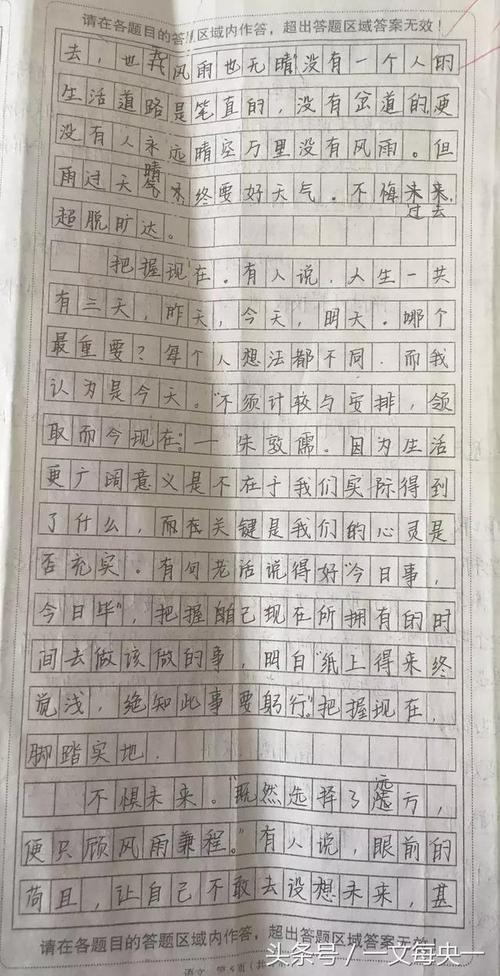 请在各题目的答题区域内作答，超出答题区域答案无效！
去，也无风雨也无晴"没有一个人的
生活道路是笔直的，没有岔道的，更
没有人永远晴空万里没有风雨。但
雨过天晴，终要好天气。不悔过去
超脱旷达。
把握现在。有人说，人生一共
有三天，昨天，今天，明天。哪个
最重要？每个人想法都不同．而我
认为是今天。"不须计较与安排，领
取而今现在。"—朱敦儒。因为生活
更广阔意义是不在于我们实际得到
了什么，而在关键是我们的心灵是
否充实。有句老话说得好"今日事，
今日毕"，把握自己现在所拥有的时
间去做该做的事，明白"纸上得来终
觉浅，绝知此事要躬行。"把握现在，
脚踏实地．
不惧未来。"既然选择了远方，
便只顾风雨兼程。"有人说，眼前的
苟且，让自己不敢去设想未来，甚
请在各题目的答题区域内作答，超出答题区域答案无效！
头条号／一文每央一